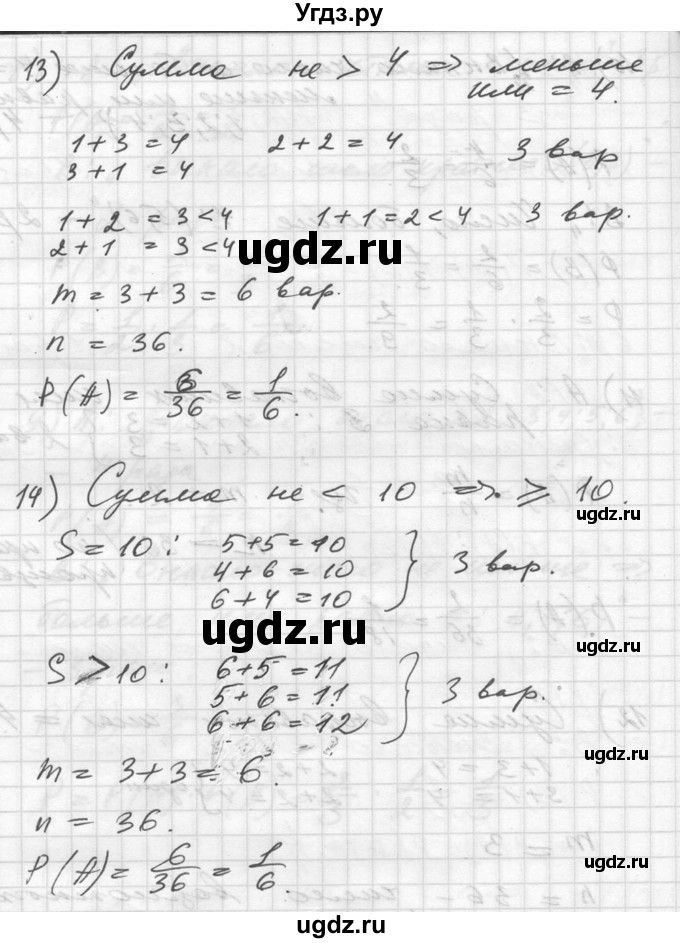 Угдз.ру
13) Сумма не > 4 => меньше
или = 4.
1+3 = 4   2+2 = 4   3 вар
3+1 = 4
1+2 = 3 < 4   1+1 = 2 < 4   3 вар.
2+1 = 3 < 4
ugdz.ru
m = 3+3 = 6 вар.
n = 36.
P(A) = 6/36 = 1/6.
14) Сумма не < 10 => ≥ 10.
ugdz.ru
S = 10: 5+5 = 10
4+6 = 10   3 вар.
6+4 = 10
ugdz.ru
ugdz.ru
S > 10: 6+5 = 11
5+6 = 11   3 вар.
6+6 = 12
ugdz.ru
m = 3+3 = 6.
n = 36.
P(A) = 6/36 = 1/6.
ugdz.ru
ugdz.ru